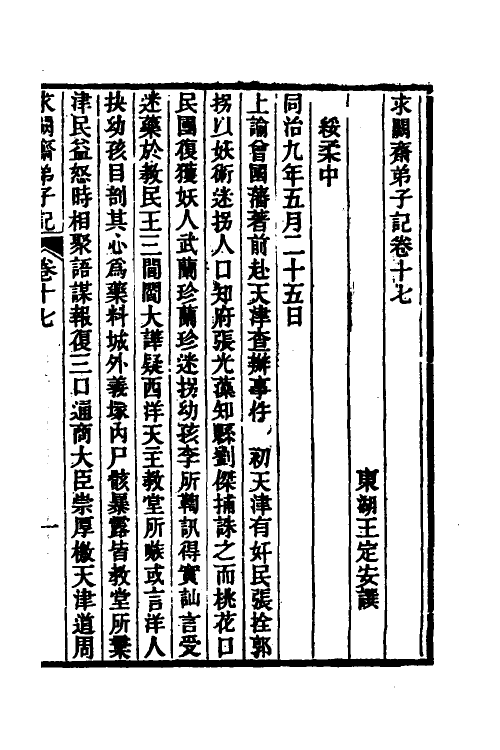 求闕齋弟子記卷十七
東湖王定安譔
綏柔中
同治九年五月二十五日
上諭曾國藩著前赴天津查辦事件初天津有奸民張拴郭
拐以妖術迷拐人口知府張光藻知縣劉傑捕誅之而桃花口
民團復獲妖人武蘭珍蘭珍迷拐幼孩李所鞫訊得實訕言受
迷藥於教民王三閭閻大譁疑西洋天主教堂所嗾或言洋人
抉幼孩目剖其心爲藥料城外義塚內尸骸暴露皆教堂所棄
津民益怒時相聚語謀報復三口通商大臣崇厚檄天津道周
求闕齋弟子記 卷十七 一